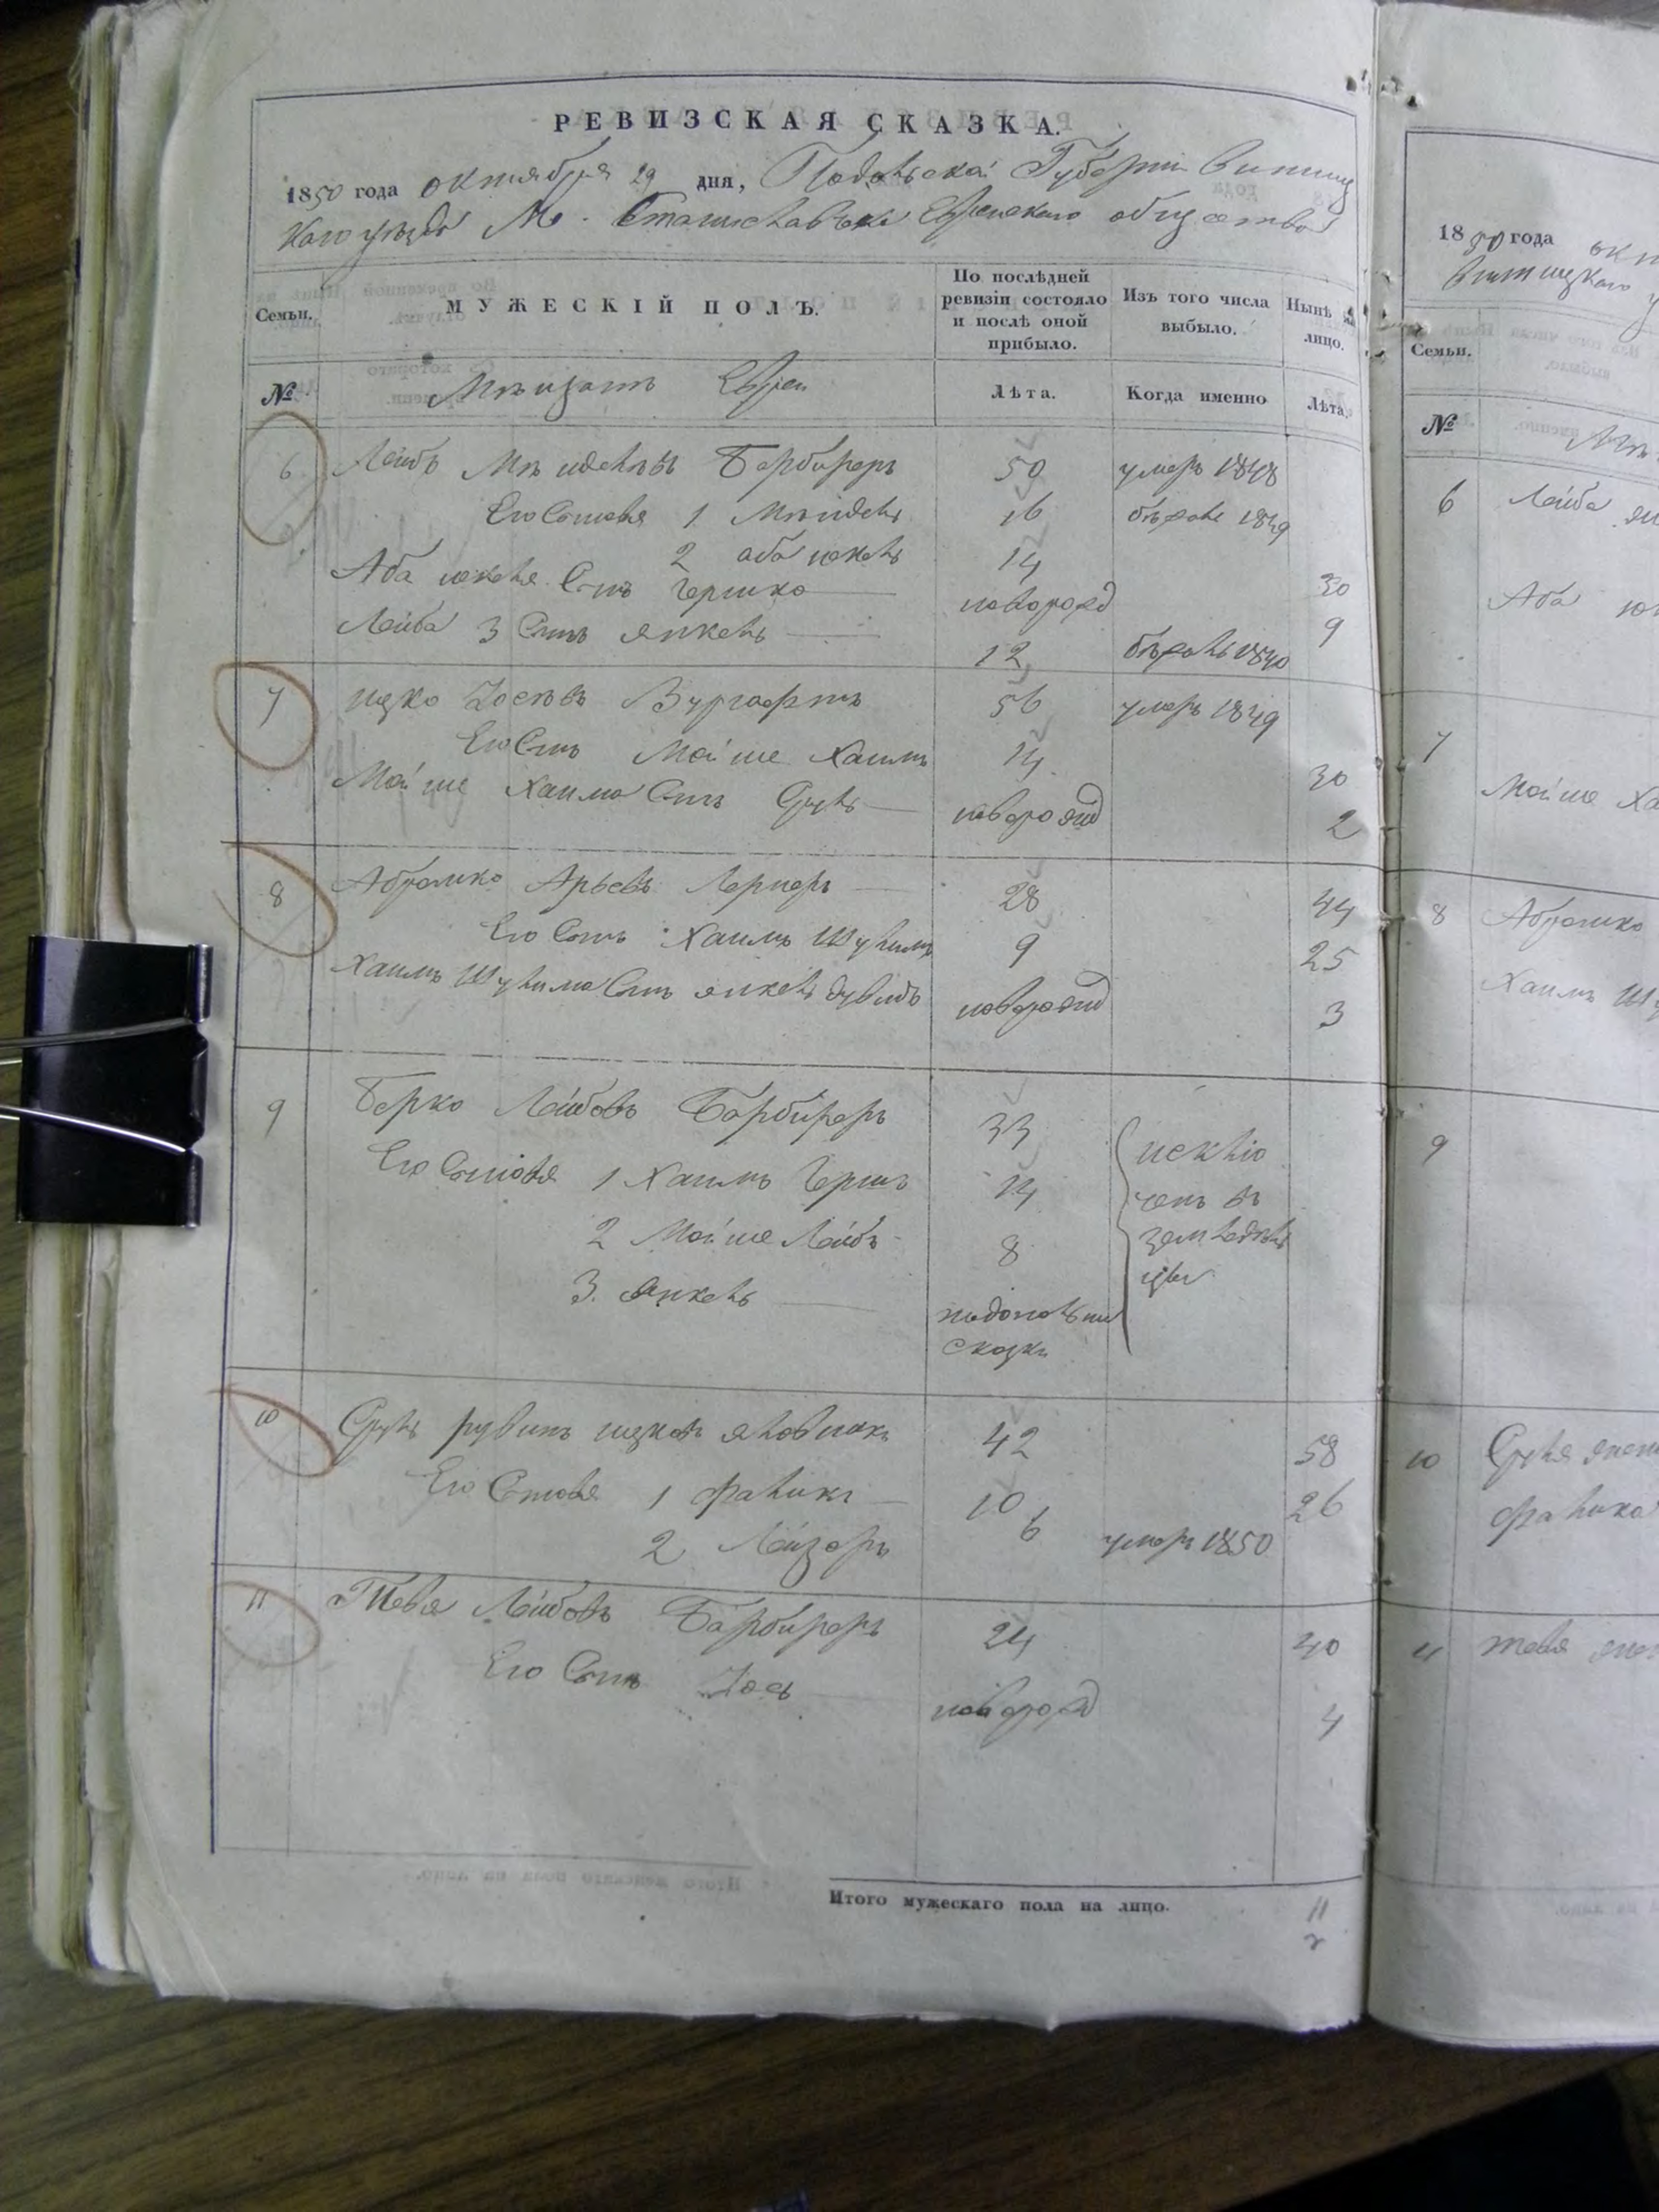 РЕВИЗСКАЯ СКАЗКА.
1850 года октября 29 дня, Подольской Губерніи Винниц
каго уезда М. Станиславъ Еврейскаго общества
Семьи.
МУЖЕСКІЙ ПОЛЪ.
По послѣдней ревизіи состояло и послѣ оной прибыло.
Изъ того числа выбыло.
Нынѣ на лицо.
№
Мѣщанъ Евреи
Лѣта.
Когда именно
Лѣта.
6 Лейбъ Барбиреръ 50 умеръ 1848
Его Сыновья 1 16 бѣжалъ 1849
2 аба юкель 14 30
Аба юкеля Сынъ Гершко новорожд 9
Лейба 3 Сынъ янкель 12 бѣжалъ 1840
7 ицко Іосевъ Вургафтъ 56 умеръ 1849
Его Сынъ Мойше Хаимъ 14 30
Мойше Хаима Сынъ Сруль новорожд 2
8 Абрамко Арьевъ Лернеръ 28 44
Его Сынъ Хаимъ Шулимъ 9 25
Хаимъ Шулима Сынъ янкель дувидъ новорожд 3
9 Берко Лейбовъ Барбиреръ 33 исклю
Его Сыновья 1 Хаимъ Гершъ 14 ченъ въ
2 Мойше Лейбъ 8 земледель
3. Янкель цы
сказки
10 Сруль рувинъ ицковъ 42 58
Его Сыновья 1 фаликъ 10 26
2 Лейзеръ 6 умеръ 1850
11 Тевя Лейбовъ Барбиреръ 24 40
Его Сынъ Іось новорожд 4
Итого мужескаго пола на лицо. 11
1850 года
Винницкаго
Семьи.
№
6 Лейба
Аба
7
Мойше Ха
8 Абрамко
Хаимъ Шу
9
10 Сруля
фалика
11 тевя